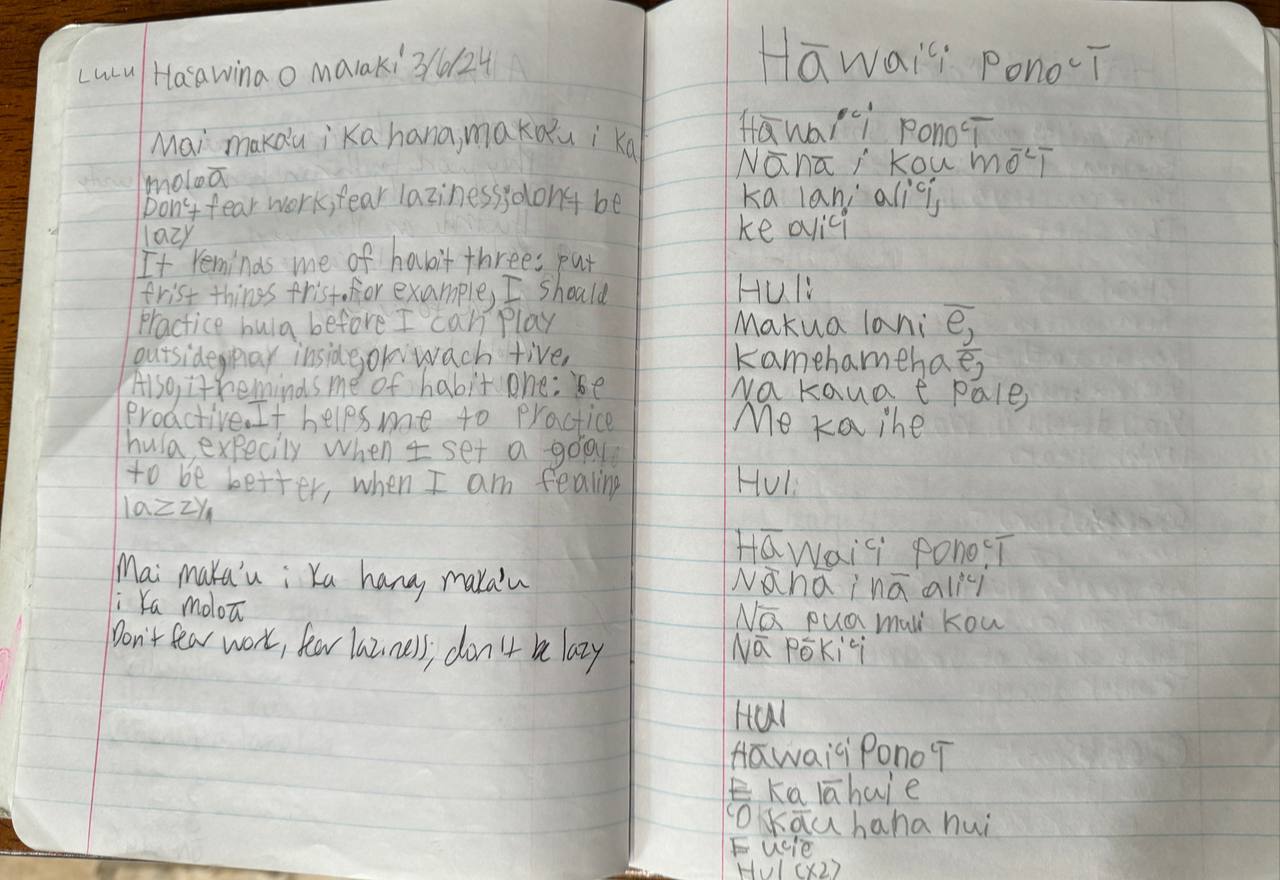 LULU Haʻawina O Malaki 3/6/24
Mai maka'u i ka hana, maka'u i ka
moloā
Donʻt fear work, fear laziness; donʻt be
lazy
It reminds me of habit three: put
frist things frist. For example, I should
Practice hula before I can play
outside, play inside, or wach tive.
Also, it reminds me of habit one: be
proactive. It helps me to practice
hula, expecily when I set a goal
to be better, when I am fealing
lazzy.
Mai maka'u i ka hana, maka'u
i ka moloā
Don't fear work, fear laziness; don't be lazy
Hāwaiʻi ponoʻī
Hāwaiʻi ponoʻī
Nānā i kou mōʻī
ka lani aliʻi,
ke aliʻi
HUI:
Makua lani ē,
Kamehameha ē,
Na kaua e pale,
Me ka ihe
HUI:
Hāwaiʻi ponoʻī
Nānā i nā aliʻi
Nā pua muli kou
Nā pōkiʻi
HUI
Hāwaiʻi Ponoʻī
E ka lāhui e
ʻO kāu hana nui
E uʻie
HUI (x2)